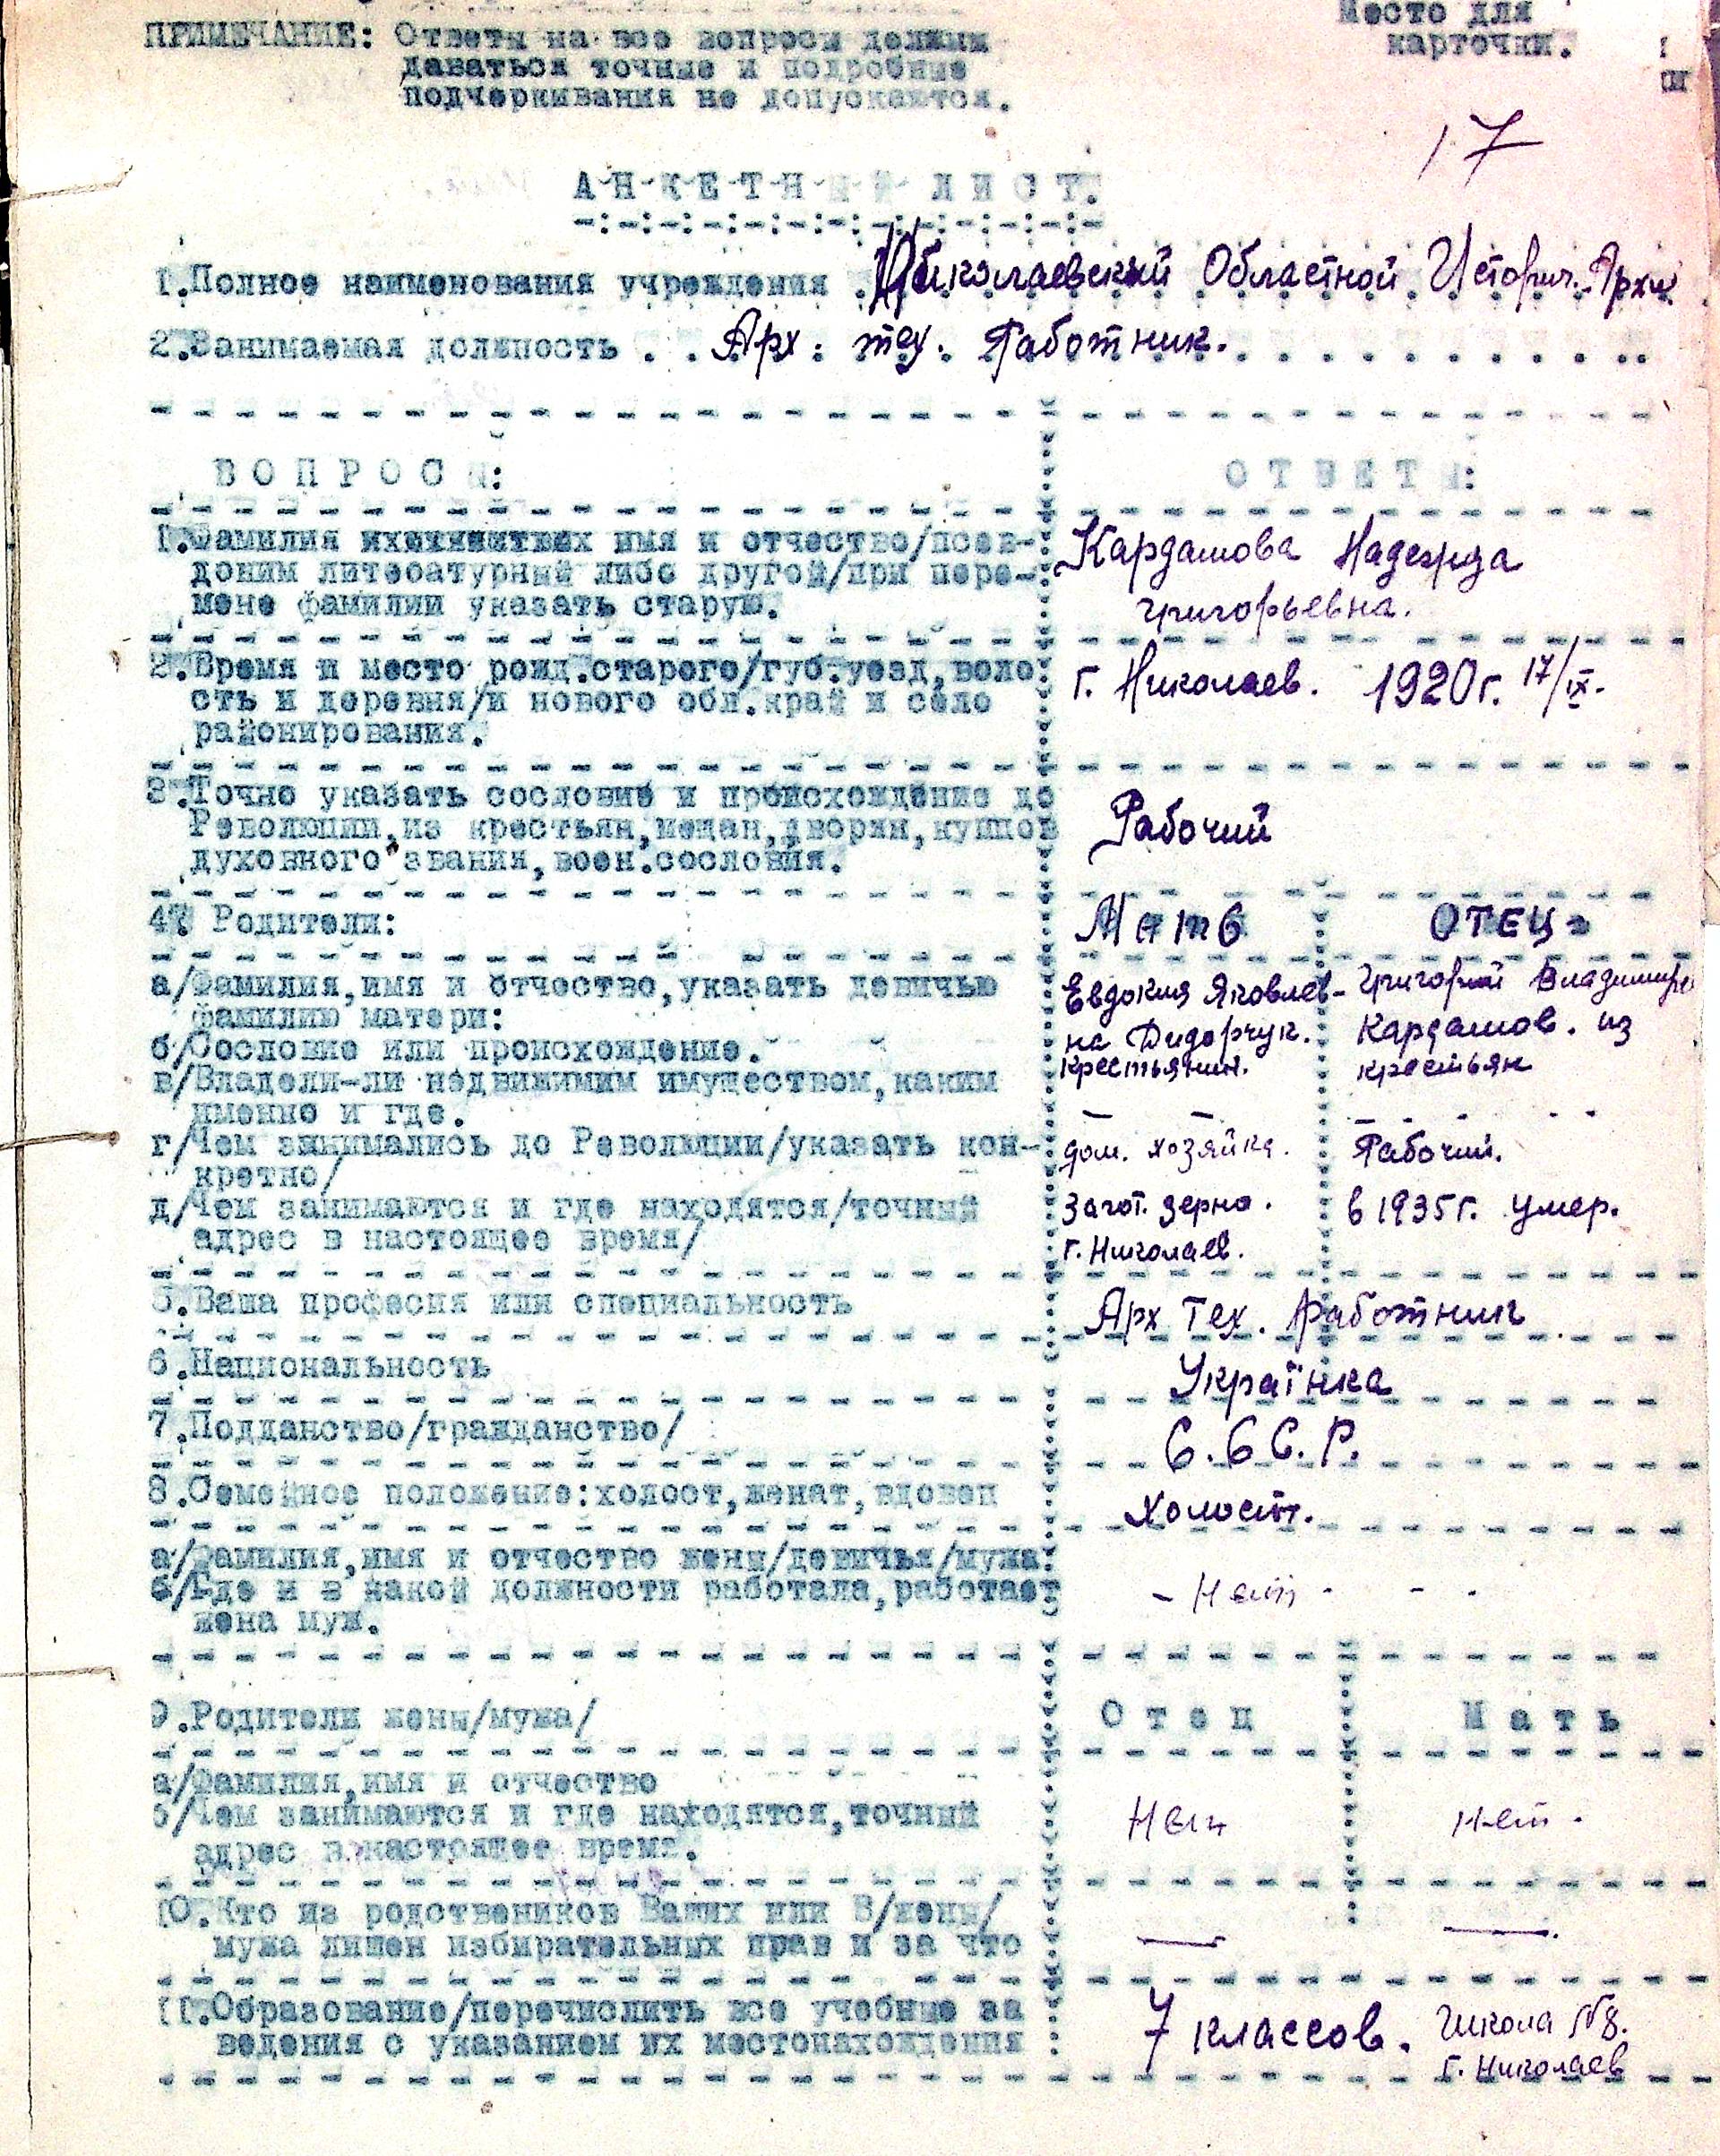 Место для
карточки.
ПРИМЕЧАНИЕ: Ответы на все вопросы должны
даваться точные и подробные
подчеркивания не допускаются.
17
А-Н-К-Е-Т-Н-Ы-Й Л И С Т.
1.Полное наименования учреждения Николаевский Областной Историч. Архив
2.Занимаемая должность . . Арх. тех. Работник.
В О П Р О С Ы: О Т В Е Т Ы:
1.Фамилия имя и отчество/псев- Кардашова Надежда
доним литературный либо другой/при пере- Григорьевна.
мене фамилии указать старую.
2.Время и место рожд.старого/губ.уезд,воло г. Николаев. 1920г. 17/IX.
сть и деревня/и нового обл.край и село
районирования.
3.Точно указать сословие и происхождение до
Революции,из крестьян,мещан,дворян,купцов Рабочий
духовного звания,воен.сословия.
4. Родители: Мать ОТЕЦ
а/Фамилия,имя и отчество,указать девичью Евдокия Яковлев- Григорий Владимиро
фамилию матери: на Дидорчук. Кардашов. из
б/Сословие или происхождение. крестьянин. крестьян
в/Владели-ли недвижимим имуществом,каким
именно и где. — — - - - - -
г/Чем занимались до Революции/указать кон- дом. хозяйка. Рабочий.
кретно/
д/Чем занимаются и где находятся/точный Загот. зерно. в 1935г. умер.
адрес в настоящее время/ г. Николаев.
5.Ваша професия или специальность Арх Тех. Работник
6.Национальность Українка
7.Подданство/гражданство/ С.С С.Р.
8.Семейное положение:холост,женат,вдовец Холост.
а/Фамилия,имя и отчество жены/девичья/мужа:
б/Где и в какой должности работала,работает - Нет - - -
жена муж.
9.Родители жены/мужа/ О т е ц М а т ь
а/Фамилия,имя и отчество
б/Чем занимаются и где находятся,точный Нет Нет.
адрес в настоящее время.
10.Кто из родствеников Ваших или В/жены/
мужа лишен избирательных прав и за что — —.
11.Образование/перечислить все учебные за 7 классов. Школа №8.
ведения с указанием их местонахождения г. Николаев